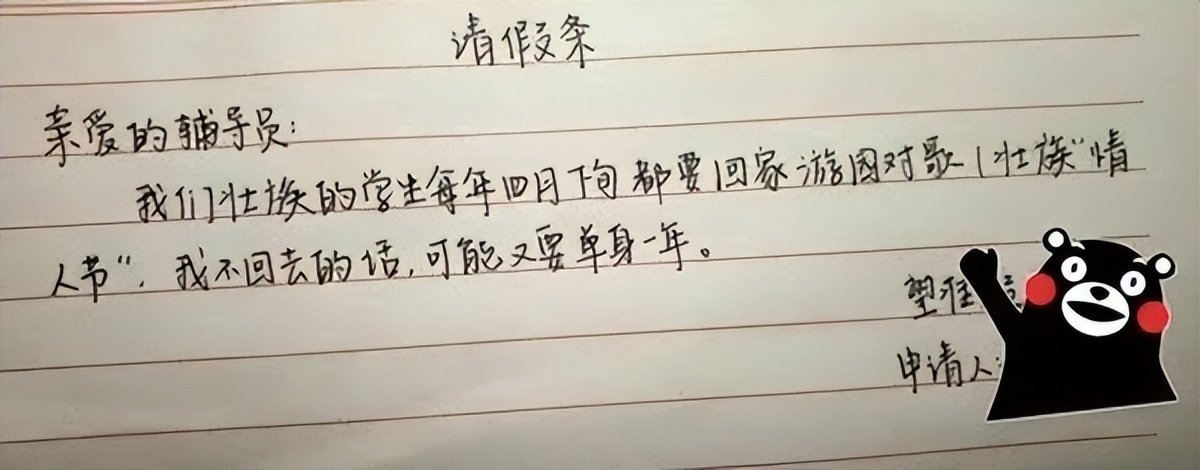 请假条
亲爱的辅导员:
我们壮族的学生每年四月下旬都要回家游园对歌(壮族"情
人节",我不回去的话,可能又要单身一年。
望准
申请人: